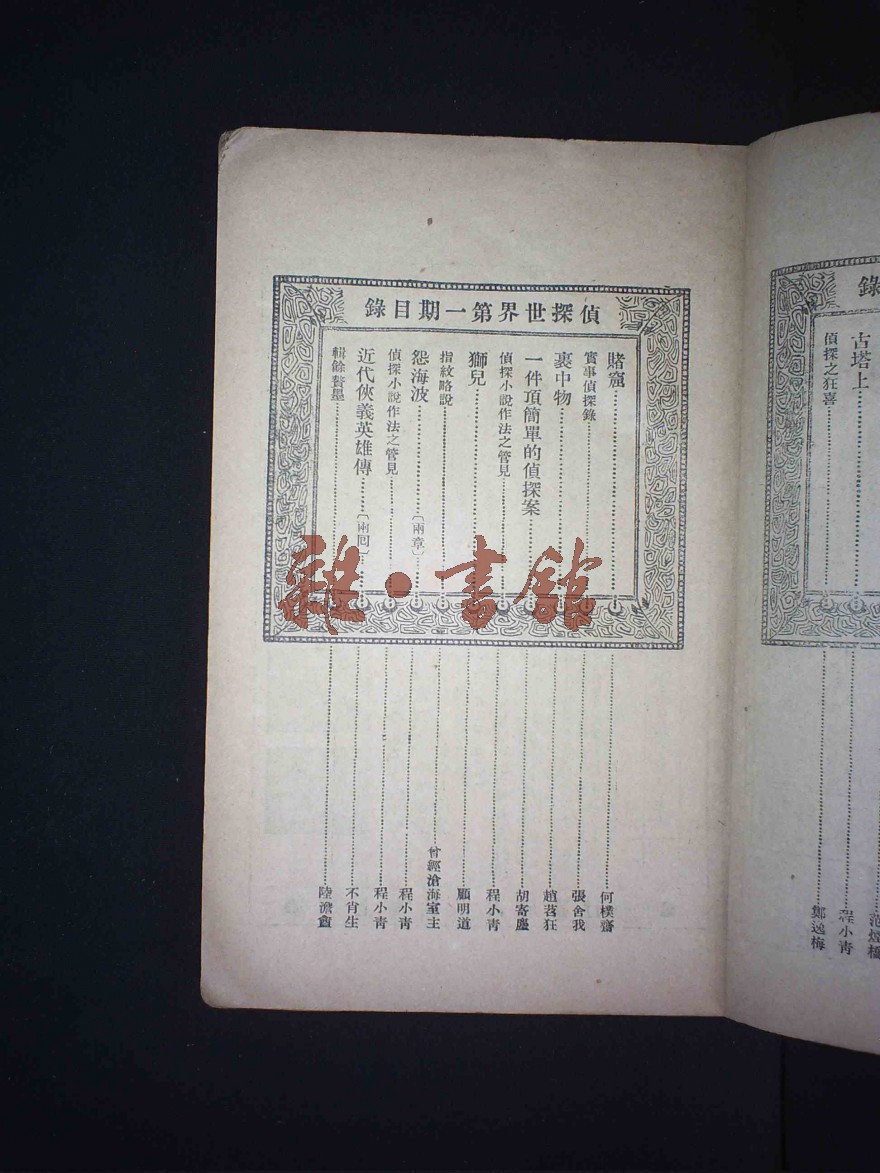 偵探世界第一期目錄
賭窟……何樸齋
實事偵探錄……張舍我
裏中物……趙苕狂
一件項簡單的偵探案……胡寄塵
偵探小說作法之管見……程小青
獅兒……顧明道
指紋略說……曾經滄海室主
怨海波……〔兩章〕……程小青
偵探小說作法之管見……程小青
近代俠義英雄傳……〔兩回〕……不肖生
輯餘贅墨……陸澹盦
雜·書館
錄
古塔上……程小青
偵探之狂喜……鄭逸梅
范煙橋